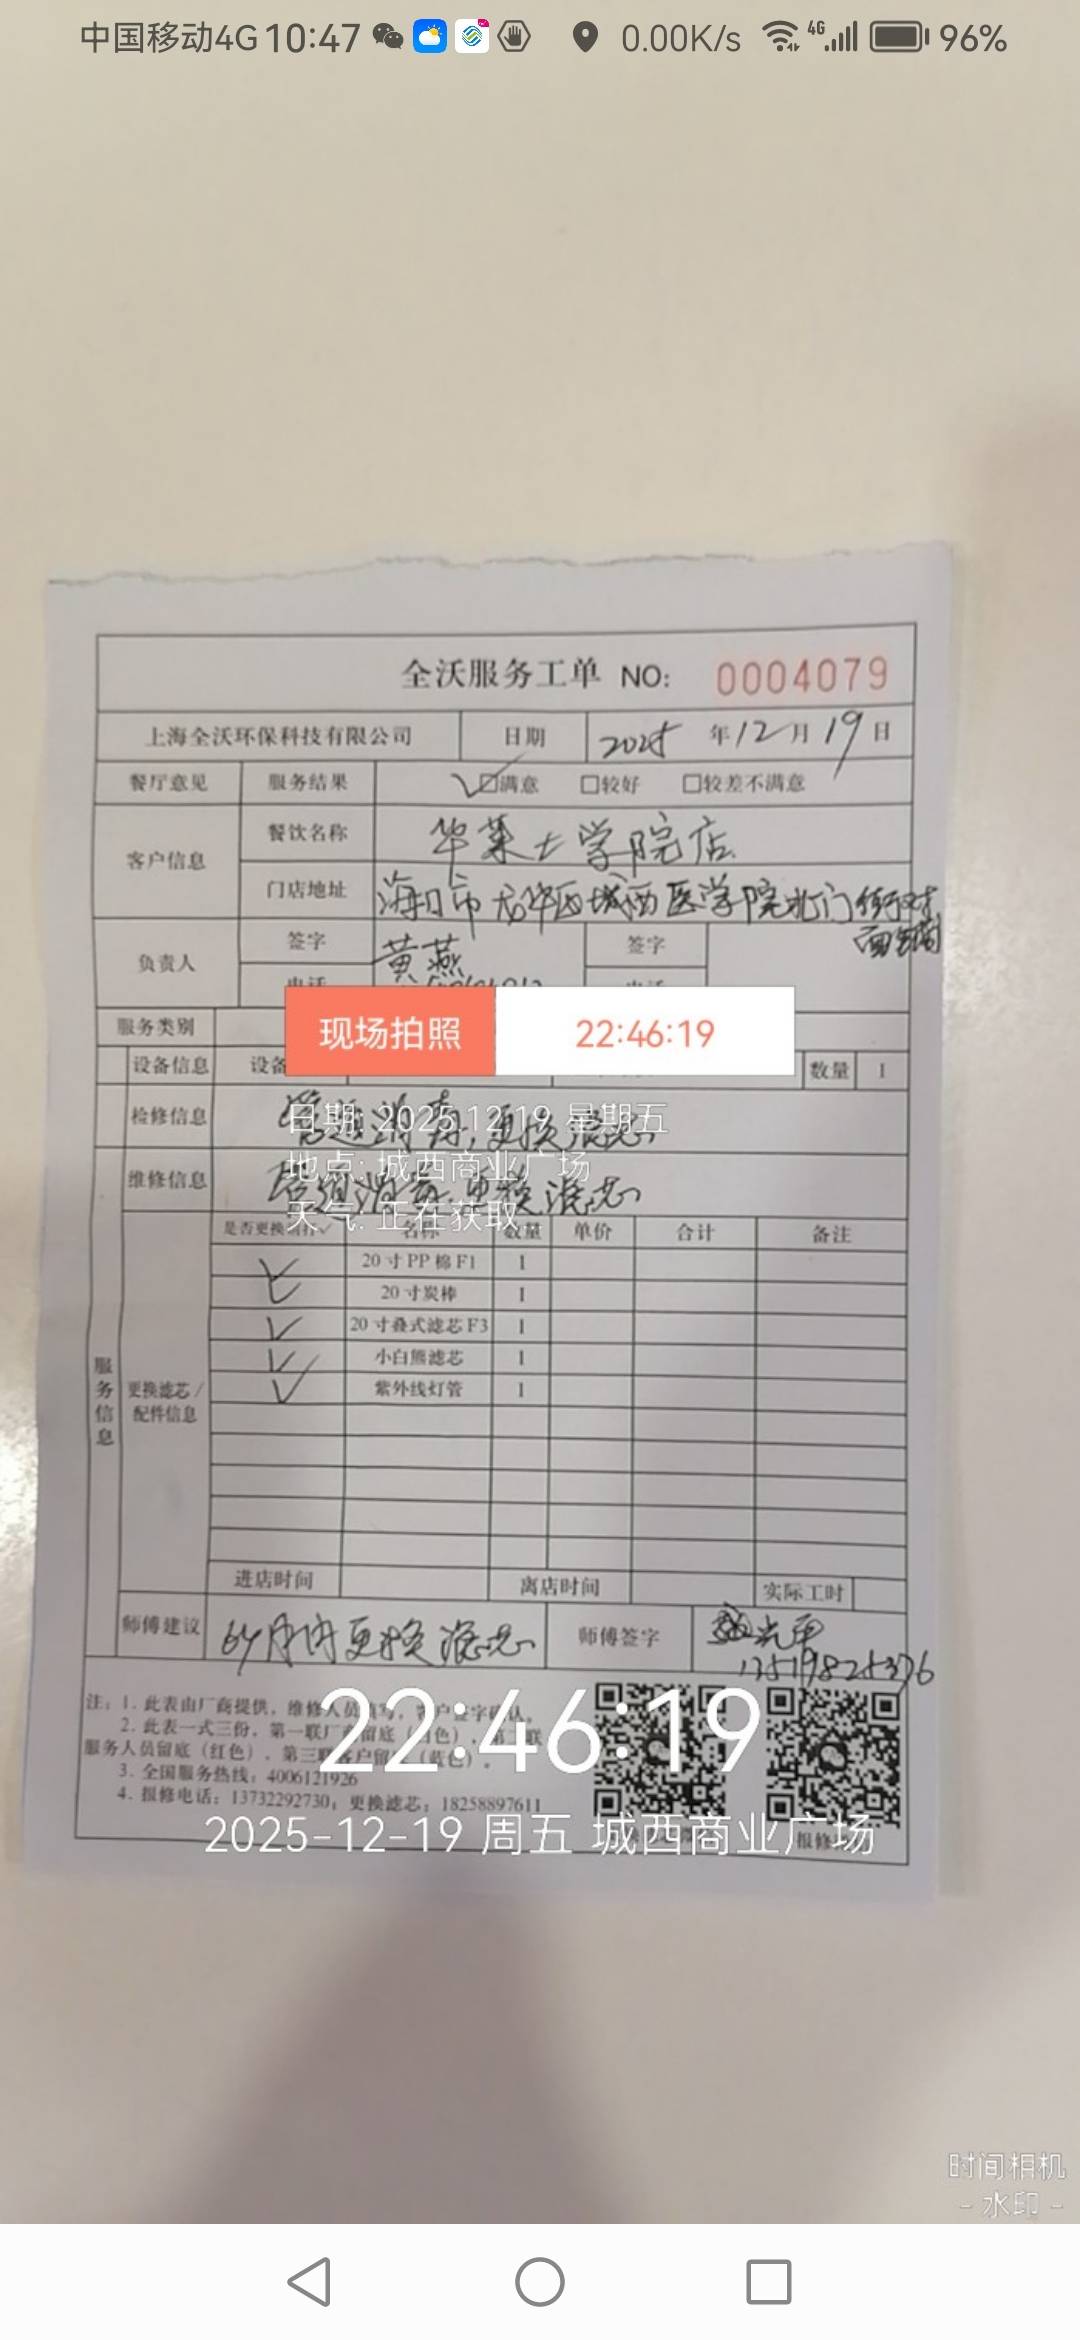 中国移动4G 10:47 0.00K/s 4G 96%
全沃服务工单 NO: 0004079
上海全沃环保科技有限公司 日期 2025 年 12 月 19 日
餐厅意见 服务结果 满意 较好 较差不满意
客户信息 餐饮名称 华莱士学院店
门店地址 海口市龙华区城西医学院北门街对
面
负责人 签字 黄燕 签字
电话 电话
现场拍照 22:46:19
服务类别
设备信息 设备 数量 1
日期: 2025.12.19 星期五
检修信息 管道消毒,更换滤芯
地点: 城西商业广场
维修信息 管道消毒,更换滤芯
天气: 正在获取
是否更换请打✓ 名称 数量 单价 合计 备注
✓ 20寸PP棉F1 1
✓ 20寸炭棒 1
✓ 20寸叠式滤芯F3 1
✓ 小白熊滤芯 1
✓ 紫外线灯管 1
服务信息
更换滤芯/
配件信息
进店时间 离店时间 实际工时
师傅建议 6个月内更换滤芯 师傅签字
注:1. 此表由厂商提供,维修人员填写,客户签字确认。
2. 此表一式三份,第一联厂商留底(白色),第二联
服务人员留底(红色),第三联客户留底(蓝色)。
3. 全国服务热线:4006121926
4. 报修电话:13732292730;更换滤芯:18258897611
22:46:19
2025-12-19 周五 城西商业广场
报修
时间相机
- 水印 -